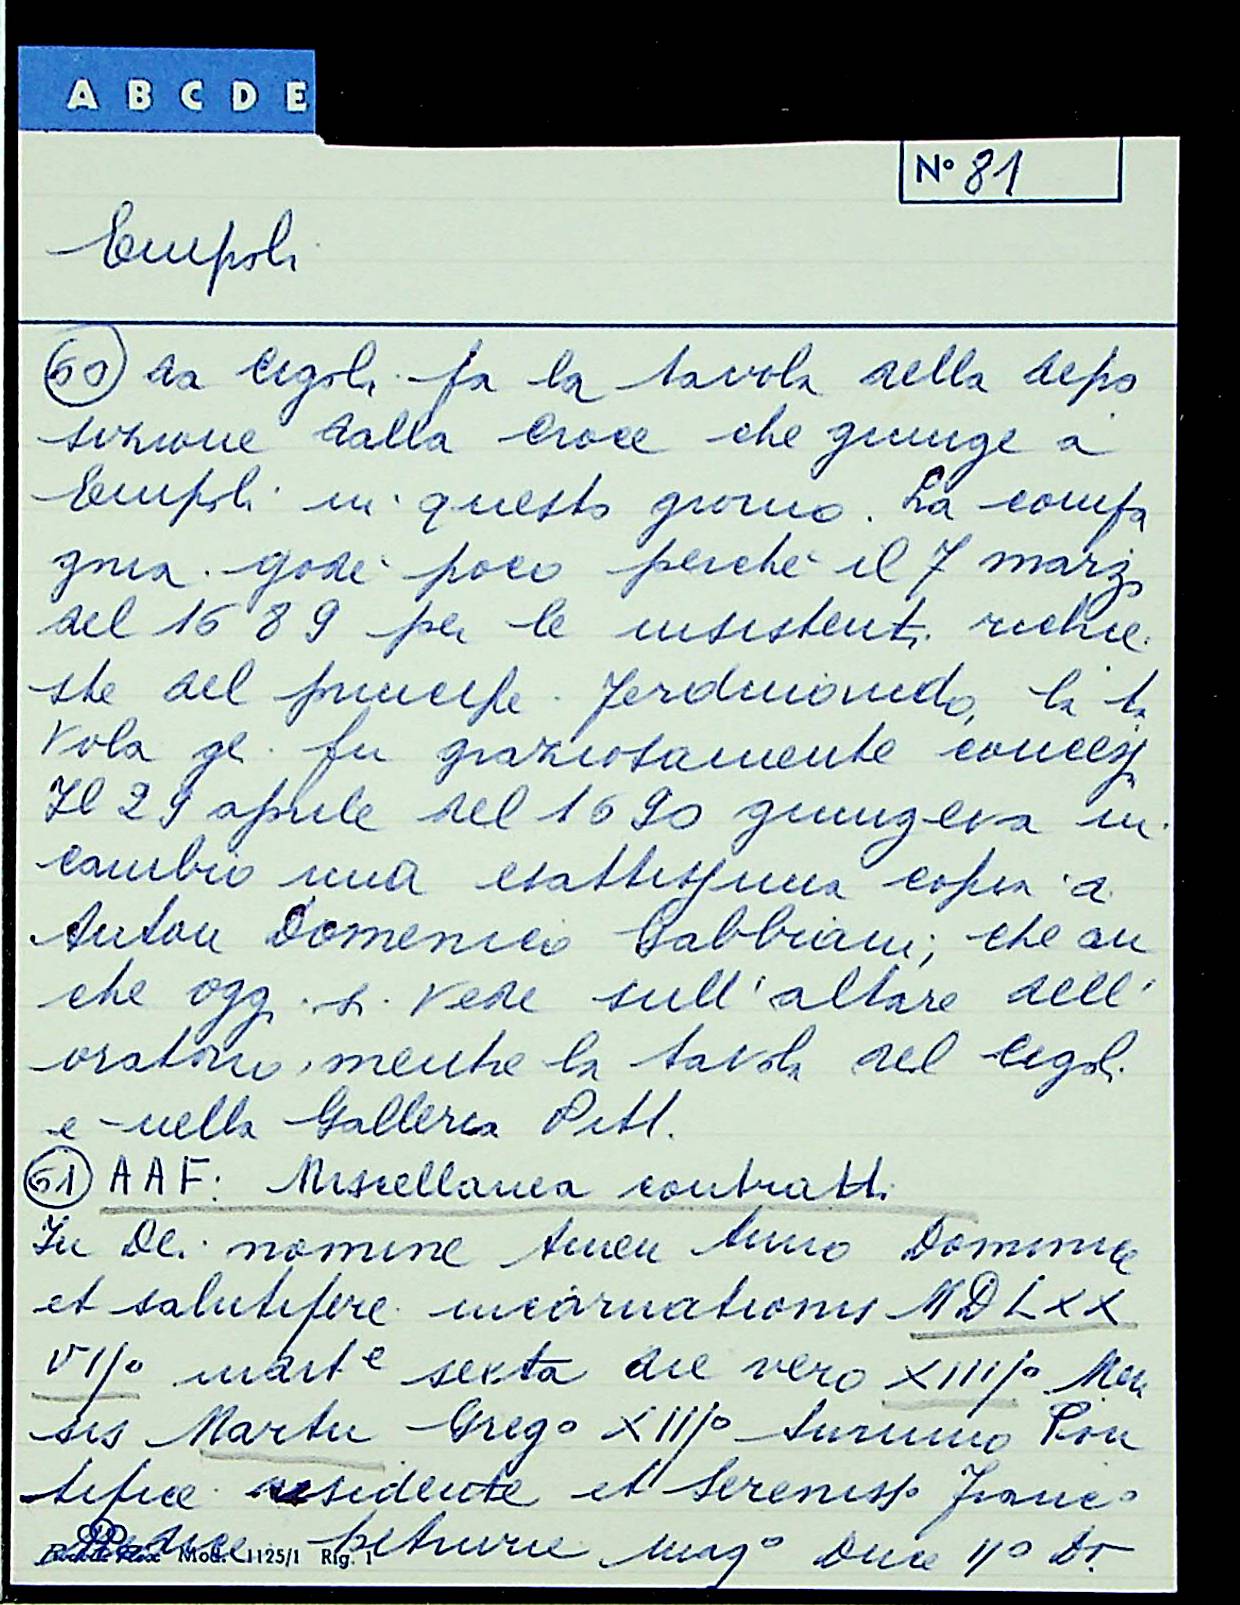 A B C D E
Nº 81
Empoli
60 da Cigoli fa la tavola della depo
sizione dalla croce che giunge a
Empoli in questo giorno. La compa
gnia godè poco perchè il 7 marzo
del 1689 per le insistenti richie
ste del principe Ferdinando, la ta
vola gli fu graziosamente concessa
Il 29 aprile del 1690 giungeva in
cambio una esattissima copia di
Anton Domenico Gabbiani; che an
che oggi si vede sull'altare dell'
oratorio, mentre la tavola del Cigoli
è nella Galleria Pitti.
61 AAF: Miscellanea contratti
In Dei nomine Amen Anno Dominice
et salutifere incarnationis MDLXX
VIIº sexta die vero XIIIIº Men
sis Martii Gregº XIIIº Summo Pon
tifice residente et Serenissº Francº
Medice Magº Duce IIº D.
Mod. 1125/1 Rig. 1